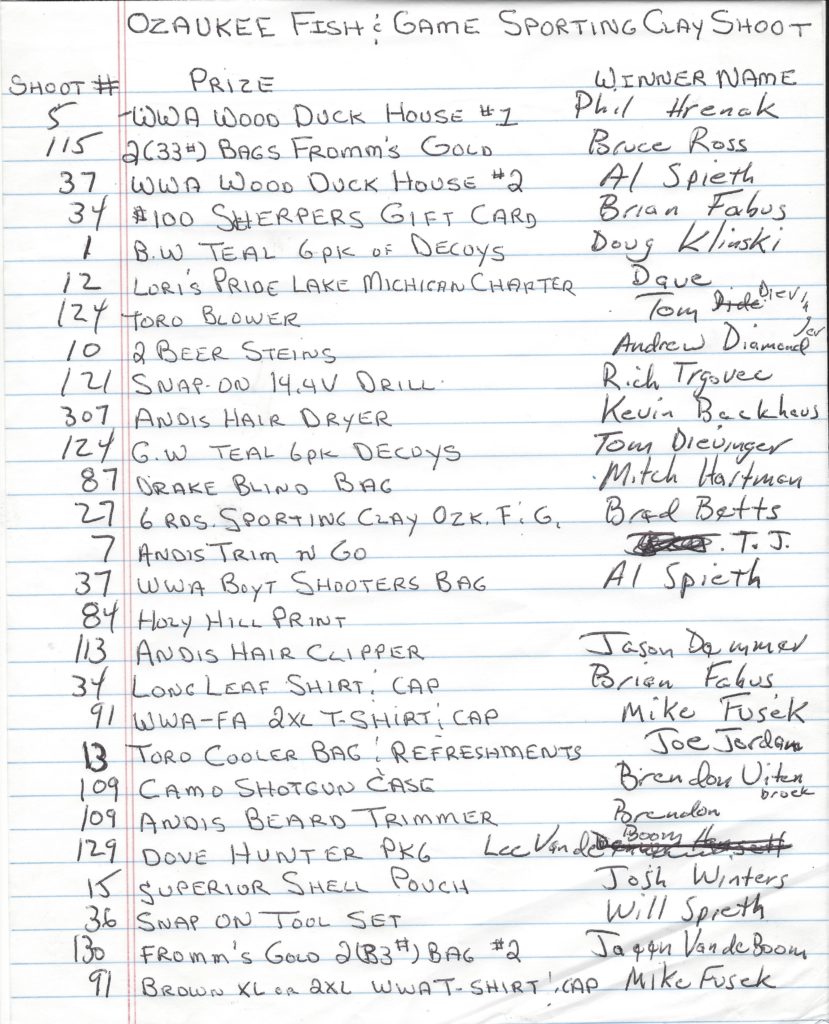 OZAUKEE FISH & GAME SPORTING CLAY SHOOT
SHOOT # PRIZE WINNER NAME
5 WWA WOOD DUCK HOUSE #1 Phil Hrenak
115 2(33#) BAGS FROMM'S GOLD Bruce Ross
37 WWA WOOD DUCK HOUSE #2 Al Spieth
34 $100 SHERPERS GIFT CARD Brian Fabus
1 B.W TEAL 6pk OF DECOYS Doug Klinski
12 LORI'S PRIDE LAKE MICHICAN CHARTER Dave
124 TORO BLOWER Tom Dievinger
10 2 BEER STEINS Andrew Diamond
121 SNAP-ON 14.4V DRILL Rich Trgovec
307 ANDIS HAIR DRYER Kevin Backhaus
124 G.W TEAL 6pk DECOYS Tom Dievinger
87 DRAKE BLIND BAG Mitch Hartman
27 6 RDS. SPORTING CLAY OZK. F & G. Brad Betts
7 ANDIS TRIM N GO T.J.
37 WWA BOYT SHOOTERS BAG Al Spieth
84 HOLY HILL PRINT
113 ANDIS HAIR CLIPPER Jason Dammer
34 LONG LEAF SHIRT & CAP Brian Fabus
91 WWA-FA 2XL T-SHIRT & CAP Mike Fusek
13 TORO COOLER BAG & REFRESHMENTS Joe Jordan
109 CAMO SHOTGUN CASE Brendon Uitenbroek
109 ANDIS BEARD TRIMMER Brendon
129 DOVE HUNTER PKG Lee VandeBoom
15 SUPERIOR SHELL POUCH Josh Winters
36 SNAP ON TOOL SET Will Spieth
130 FROMM'S GOLD 2(33#) BAG #2 VandeBoom
91 BROWN XL OR 2XL WWA T-SHIRT & CAP Mike Fusek